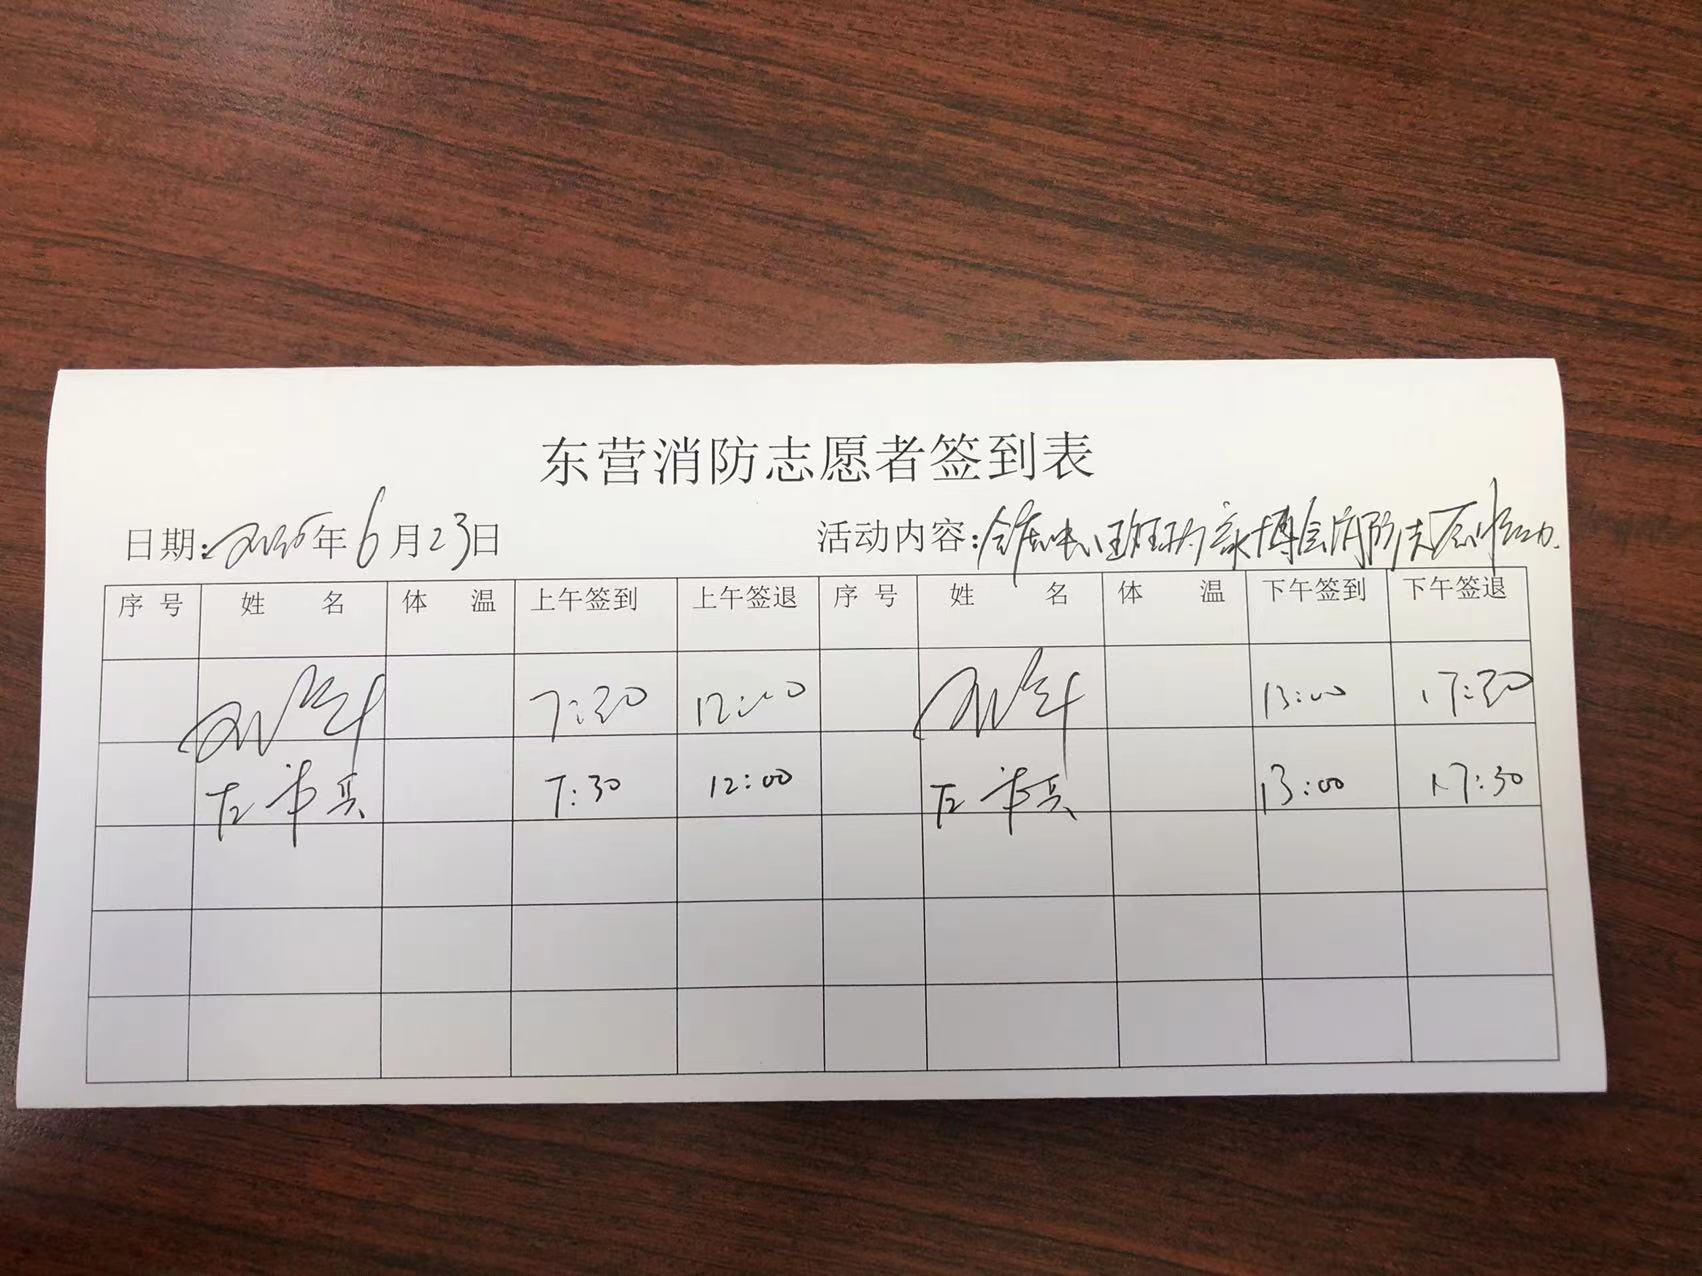 东营消防志愿者签到表
日期: 年6月23日 活动内容: 家博会消防志愿
序号 姓 名 体 温 上午签到 上午签退 序号 姓 名 体 温 下午签到 下午签退
7:30 12:00 13:00 17:30
左 7:30 12:00 左 13:00 17:30